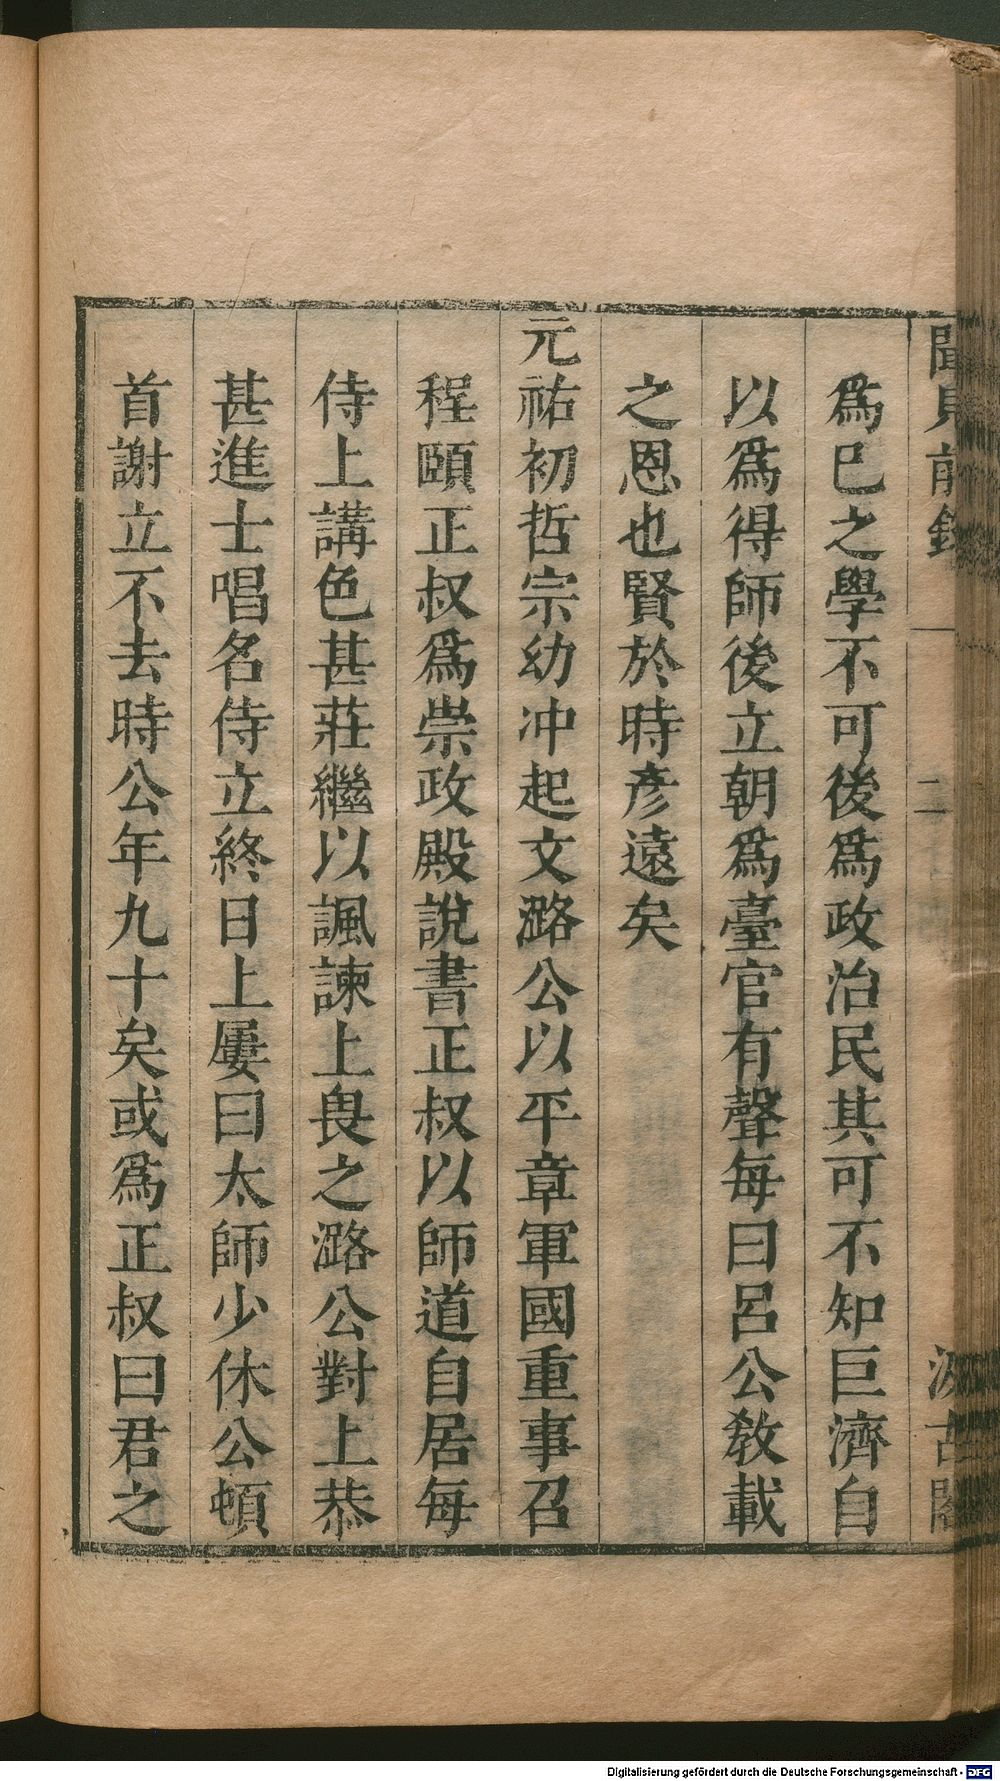 聞見前錄
二
汲古閣
爲已之學不可後爲政治民其可不知巨濟自
以爲得師後立朝爲臺官有聲每曰呂公敎載
之恩也賢於時彥遠矣
元祐初哲宗幼冲起文潞公以平章軍國重事召
程頤正叔爲崇政殿說書正叔以師道自居每
侍上講色甚莊繼以諷諫上畏之潞公對上恭
甚進士唱名侍立終日上屢曰太師少休公頓
首謝立不去時公年九十矣或爲正叔曰君之
Digitalisierung gefördert durch die Deutsche Forschungsgemeinschaft - DFG